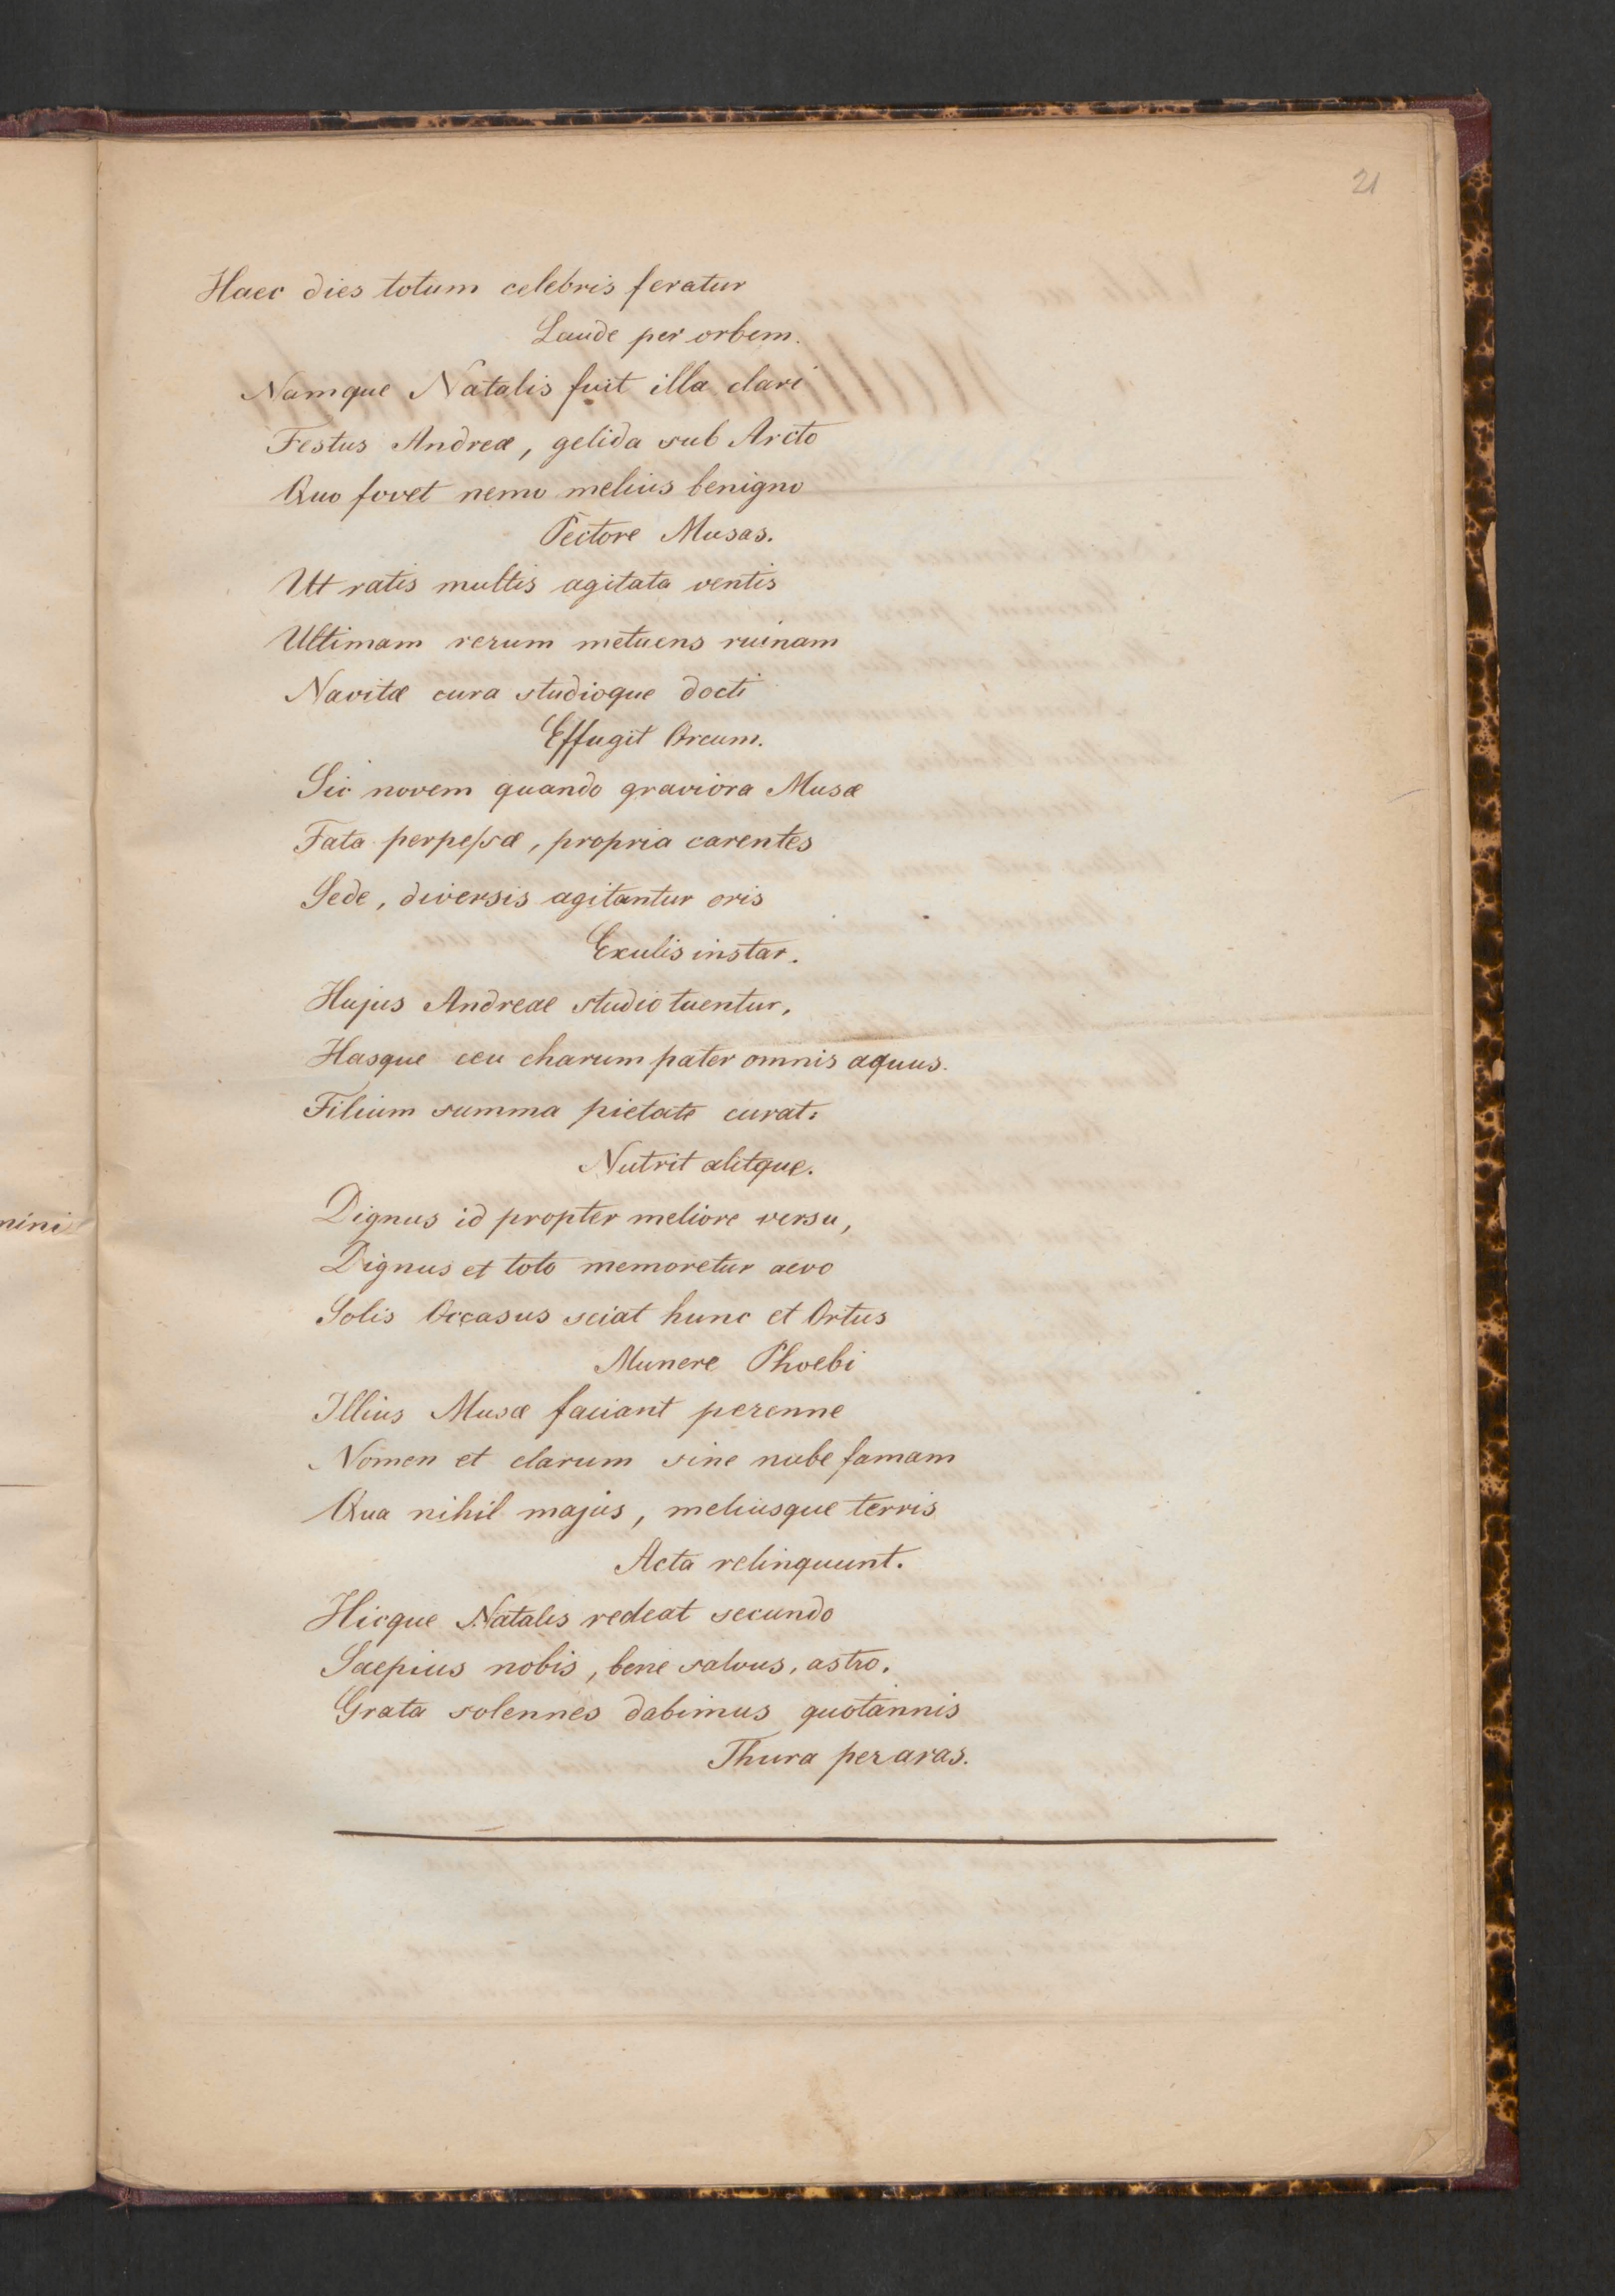 21
Haec dies totum celebris feratur
Laude per orbem.
Namque Natalis fuit illa clari
Festus Andreæ, gelida sub Arcto
Quo fovet nemo melius benigno
Pectore Musas.
Ut ratis multis agitata ventis
Ultimam rerum metuens ruinam
Navitæ cura studioque docti
Effugit Orcum.
Sic novem quando graviora Musæ
Fata perpeſsæ, propria carentes
Sede, diversis agitantur oris
Exulis instar.
Hujus Andreae studio tuentur,
Hasque ceu charum pater omnis æquus.
Filium summa pietate curat:
Nutrit alitque.
Dignus id propter meliore versu,
Dignus et toto memoretur aevo
Solis Occasus sciat hunc et Ortus
Munere Phoebi
Illius Musæ faciant perenne
Nomen et clarum sine nube famam
Qua nihil majus, meliusque terris
Acta relinquunt.
Hicque Natalis redeat secundo
Saepius nobis, bene salvus, astro.
Grata solennes dabimus quotannis
Thura per aras.